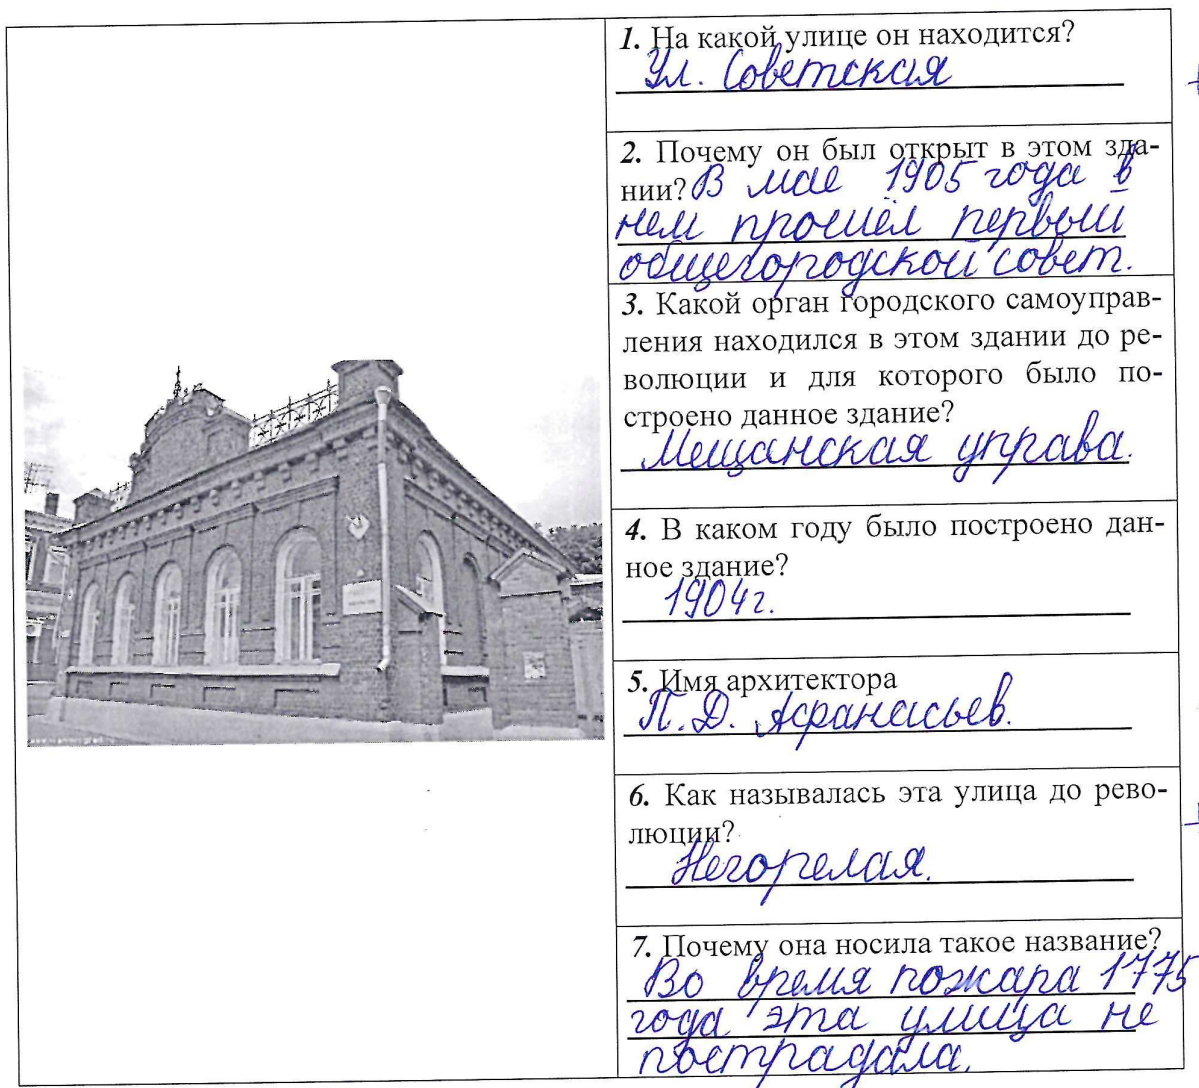 1. На какой улице он находится?
Ул. Советская
2. Почему он был открыт в этом зда-
нии? В мае 1905 года в
нем прошёл первый
общегородской совет.
3. Какой орган городского самоуправ-
ления находился в этом здании до ре-
волюции и для которого было по-
строено данное здание?
Мещанская управа.
4. В каком году было построено дан-
ное здание?
1904г.
5. Имя архитектора
П.Д. Афанасьев.
6. Как называлась эта улица до рево-
люции?
Негорелая.
7. Почему она носила такое название?
Во время пожара 1775
года эта улица не
пострадала.